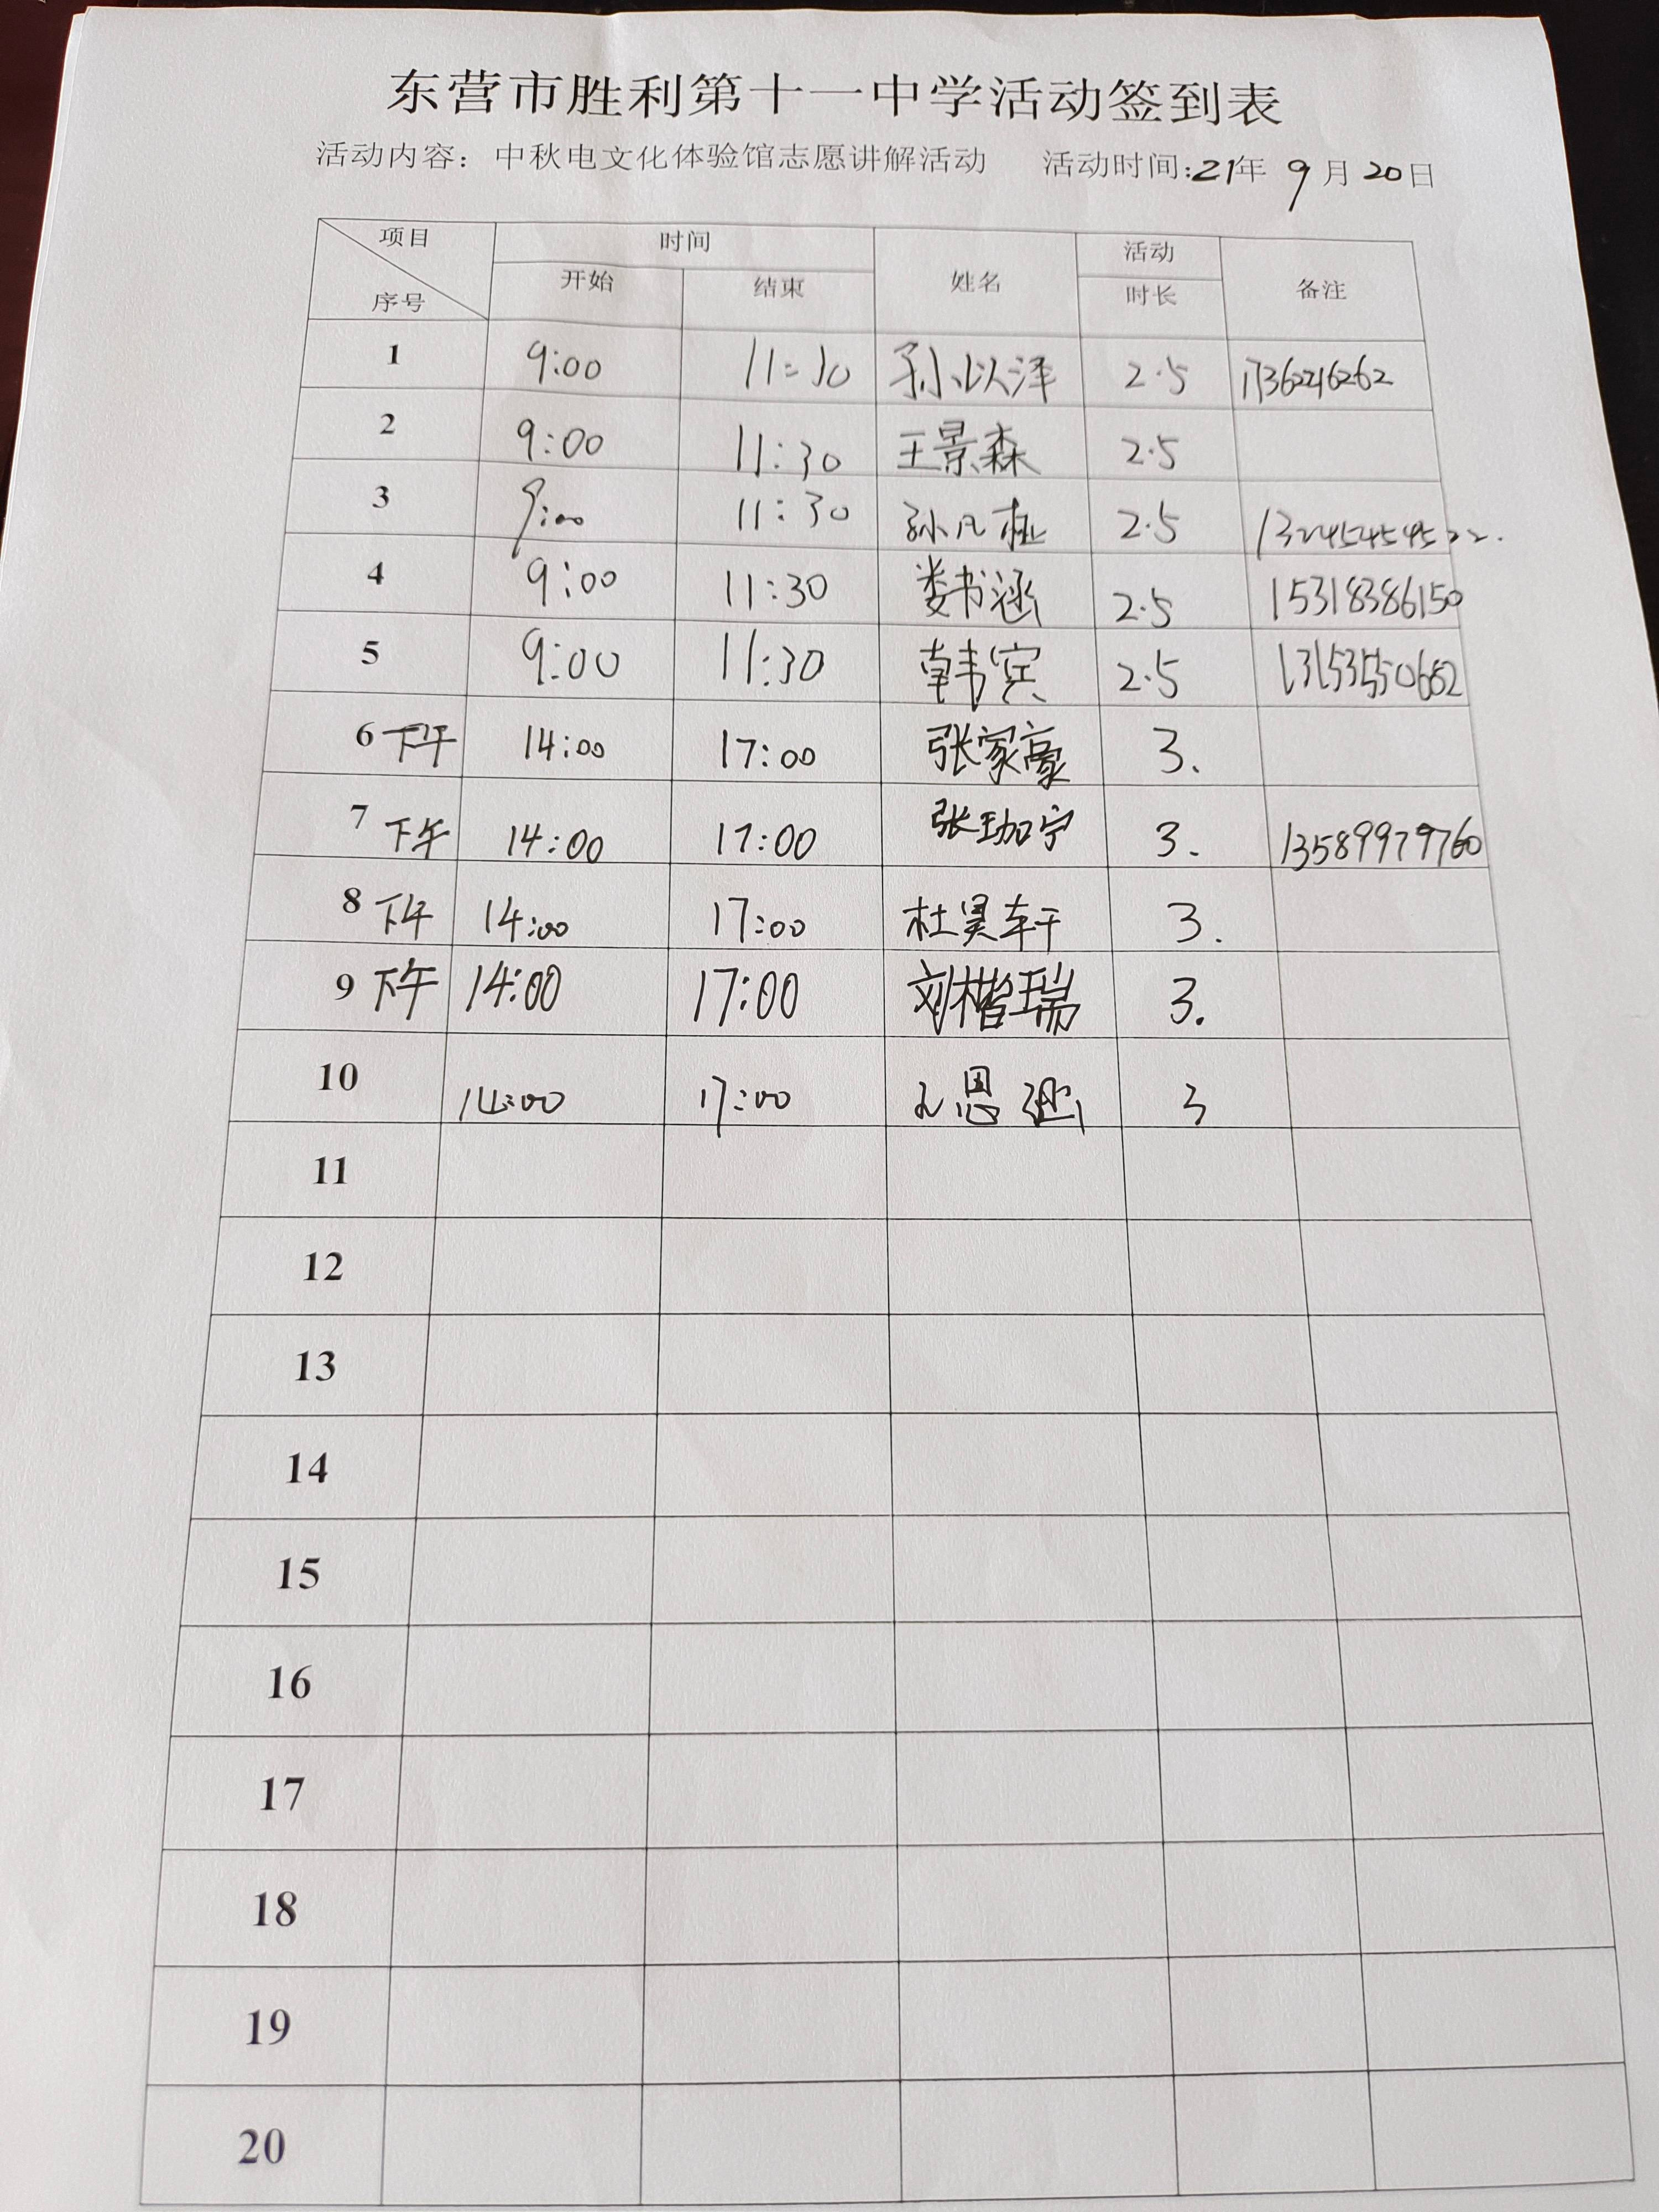 东营市胜利第十一中学活动签到表
活动内容：中秋电文化体验馆志愿讲解活动 活动时间:21年 9月20日
项目 时间 姓名 活动 备注
序号 开始 结束 时长
1 9:00 11:30 孙以泽 2.5
2 9:00 11:30 王景森 2.5
3 9:00 11:30 孙凡 2.5
4 9:00 11:30 娄书涵 2.5 15318386150
5 9:00 11:30 韩宾 2.5
6下午 14:00 17:00 张家豪 3.
7下午 14:00 17:00 张珈宁 3. 13589979760
8下午 14:00 17:00 杜昊轩 3.
9下午 14:00 17:00 刘楷瑞 3.
10 14:00 17:00 思 3
11
12
13
14
15
16
17
18
19
20